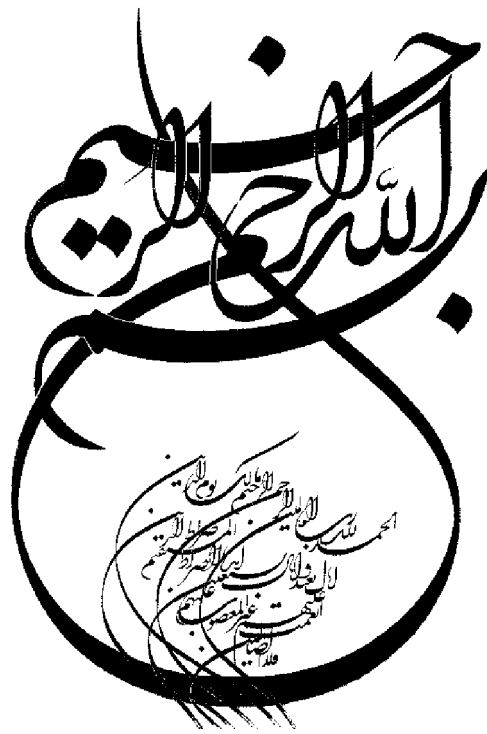 بسم الله الرحمن الرحيم
الحمد لله رب العالمين الرحمن الرحيم مالك يوم الدين
اياك نعبد و اياك نستعين اهدنا الصراط المستقيم صراط الذين
انعمت عليهم غير المغضوب عليهم
و لا الضالين